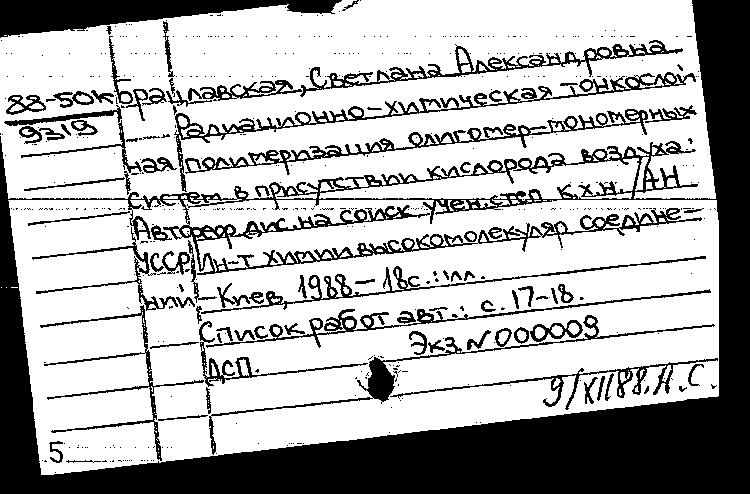 88-50к
9319
Борацлавская, Светлана Александровна
Радиационно-химическая тонкослой
ная полимеризация олигомер-мономерных
систем в присутствии кислорода воздуха:
Автореф дис. на соиск учен. степ к.х.н. /АН
УССР. Ин-т химии высокомолекуляр соедине-
ний – Киев, 1988. – 18с.: ил.
Список работ авт.: с. 17-18.
Экз. N 000009
ДСП.
9/XII88. А.С.
5